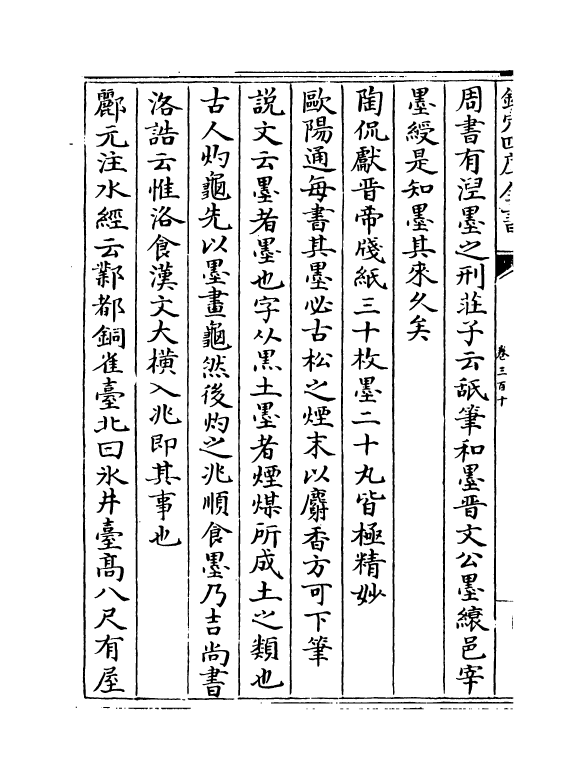 欽定四庫全書
卷三百十
周書有涅墨之刑莊子云舐筆和墨晉文公墨縗邑宰
墨綬是知墨其來久矣
陶侃獻晉帝牋紙三十枚墨二十丸皆極精妙
歐陽通每書其墨必古松之煙末以麝香方可下筆
説文云墨者墨也字从黑土墨者煙煤所成土之類也
古人灼龜先以墨畫龜然後灼之兆順食墨乃吉尚書
洛誥云惟洛食漢文大横入兆即其事也
酈元注水經云鄴都銅雀臺北曰氷井臺髙八尺有屋